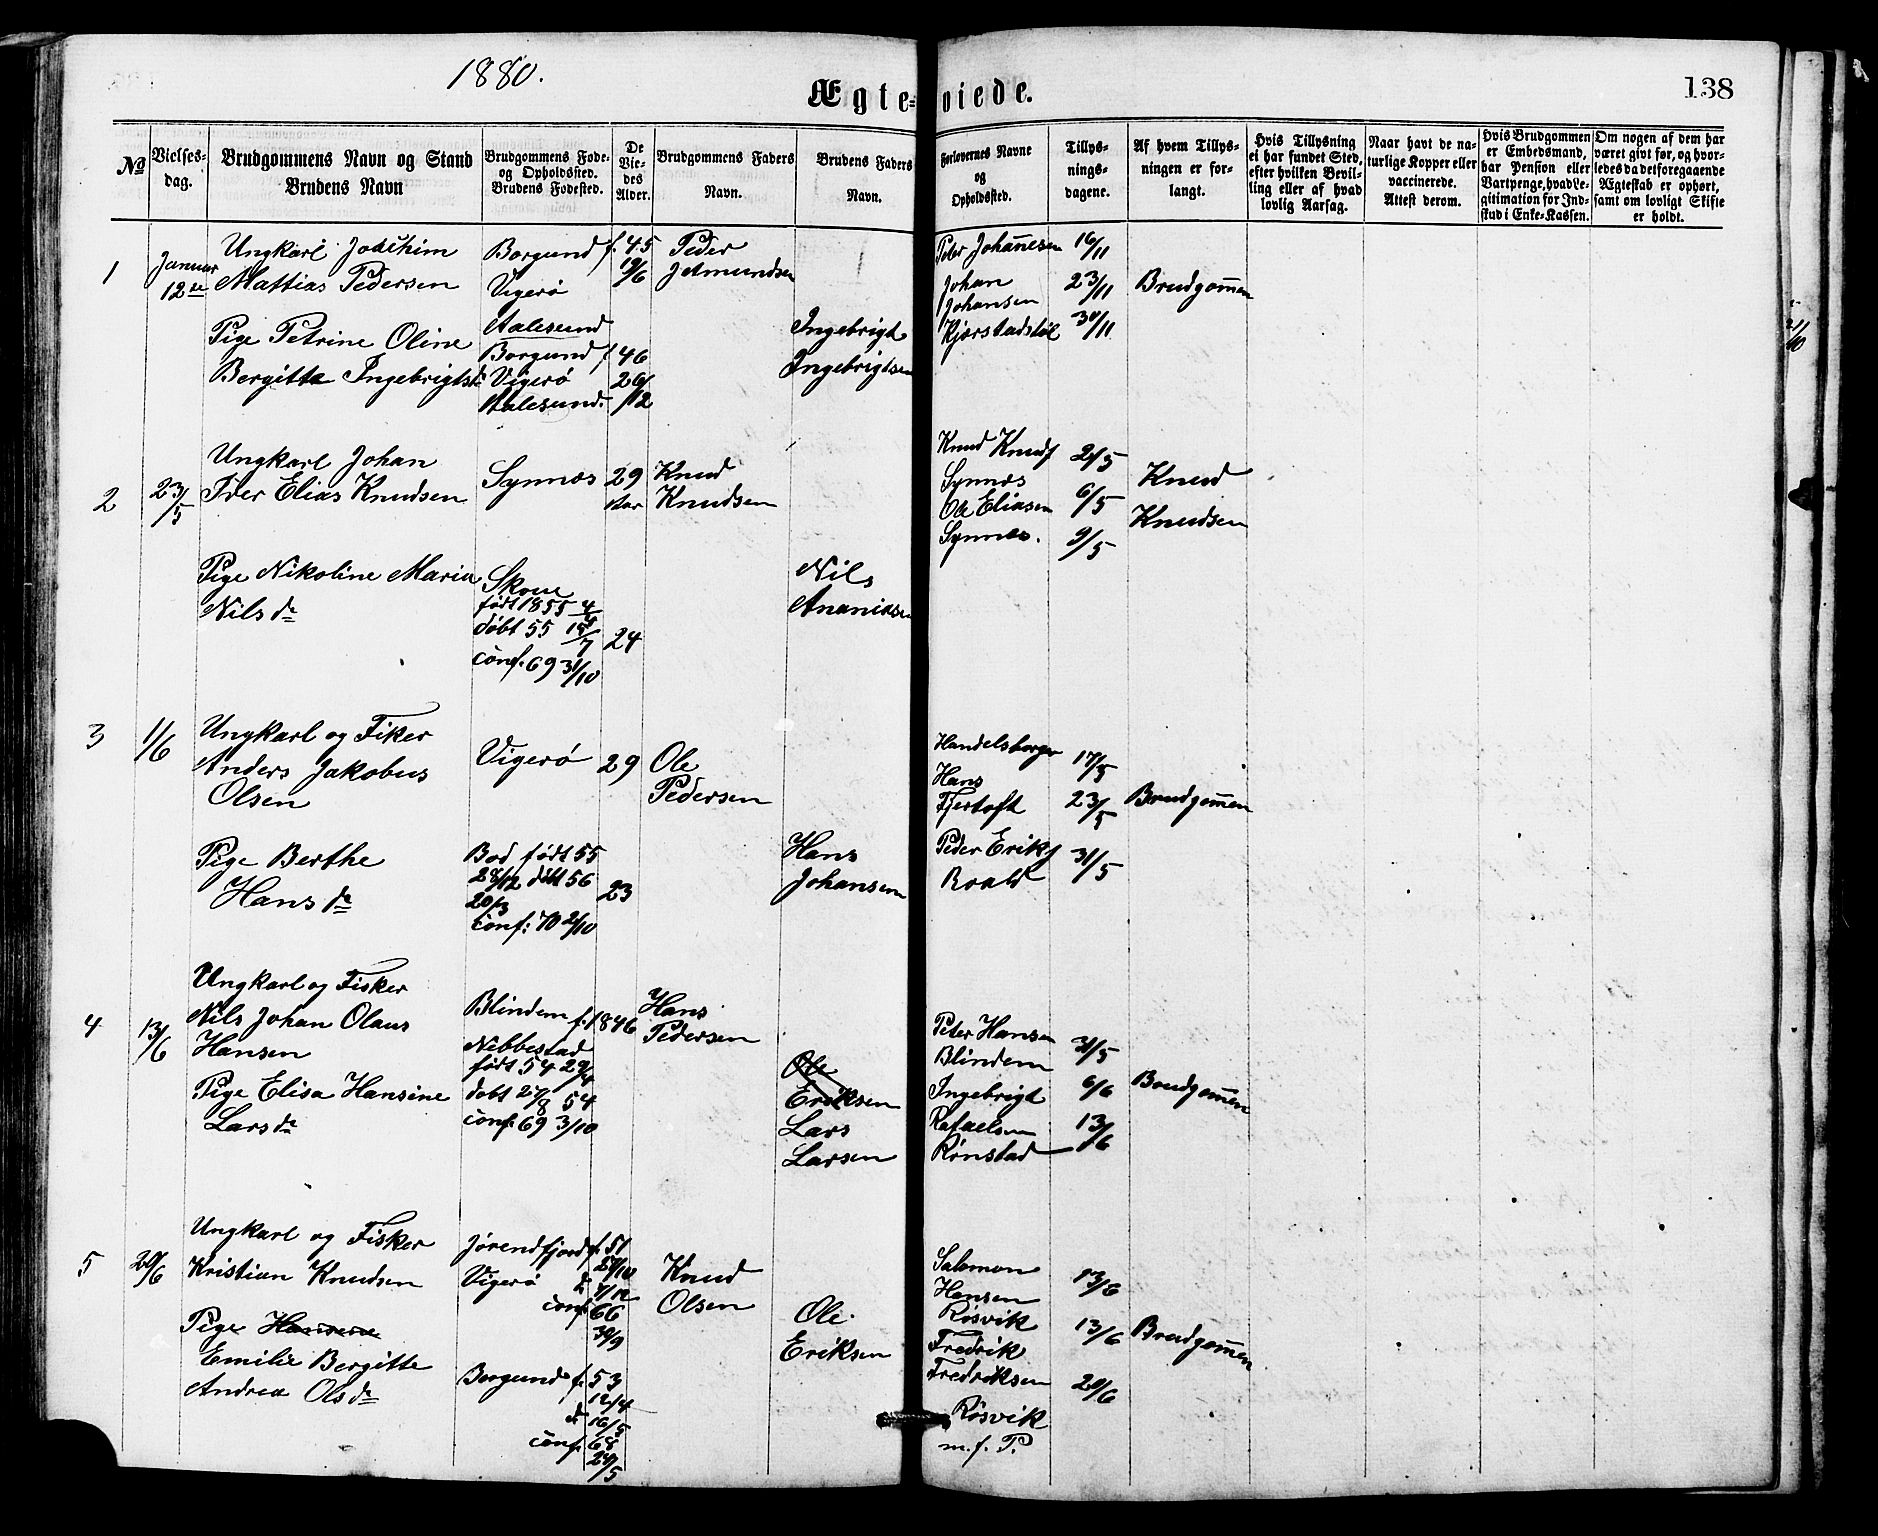 1880.
Ægteviede.
138
No
Vielses-dag.
Brudgommens Navn og Stand
Brudens Navn
Brudgommens Føde- og Opholdssted.
Brudens Fødested.
De Viedes Alder.
Brudgommens Faders Navn.
Brudens Faders Navn.
Forlovernes Navne og Opholdssted.
Tillysningsdagene.
Af hvem Tillysningen er forlangt.
Hvis Tillysning ei har fundet Sted, efter hvilken Bevilling eller af hvad lovlig Aarsag.
Naar havt de naturlige Kopper eller vaccinerede. Attest derom.
Hvis Brudgommen er Embedsmand, har Pension eller Vartpenge, hvad Legitimation for Indskud i Enke-Kassen.
Om nogen af dem har været givt før, og hvorledes da det foregaaende Ægteskab er ophørt, samt om lovligt Skifte er holdt.
1
Januar
12te
Ungkarl Joachim
Mattias Pedersen
Borgund
Vigerø
f. 45
19/6
Peder
Jetmundsen
Peter Johannesen
Johan
Johansen
Kjærstadstøl
16/11
23/11
30/11
Brudgommen
Pige Petrine Oline
Bergitta Ingebrigtsd
Aalesund
Borgund
Vigerø
Aalesund.
f 46
26/12
Ingebrigt
Ingebrigtsen
2
23/5
Ungkarl Johan
Peder Elias Knudsen
Synnes
29
Aar
Knud
Knudsen
Knud Knuds
Synnes
Ole Eliasen
Synnes.
2/5
6/5
9/5
Knud
Knudsen
Pige Nikoline Maria
Nilsdr
født 1855
døbt 55
conf. 69 31/10
24
Nils
Ananiasen
3
1/6
Ungkarl og Fiker
Anders Jakobus
Olsen
Vigerø
29
Ole
Pedersen
Handelsborger
Hans
Fjertoft
Peder Eriks
Roald
17/5
23/5
31/5
Brudgommen
Pige Berthe
Hansdr
Bod født 55
28/12 døbt 56
20/3
conf: 70 2/10
23
Hans
Johansen
4
13/6
Ungkarl og Fisker
Nils Johan Olaus
Hansen
Blindem
f. 1846
Hans
Pedersen
Peter Hansen
Blindem
Ingebrigt
Rafaelsen
Rønstad
31/5
6/6
13/6
Brudgommen
Pige Elisa Hansine
Larsdr
Nebbestad
født 54 29/4
døbt 27/8 54
conf. 69 3/10
Ole
Eriksen
Lars
Larsen
5
20/6
Ungkarl og Fisker
Kristian Knudsen
Jørendfjord
Vigerø
f. 51
27/10
d
7/12
conf. 66
30/9
Knud
Olsen
Salomon
Hansen
Røsvik
Fredrik
Fredriksen
Røsvik
m. f. P.
13/6
13/6
20/6
Brudgommen
Pige Hansine
Emilie Bergitte
Andrea Olsdr
Borgund
f. 53
12/4
d
16/5
conf. 68
24/5
Ole
Eriksen